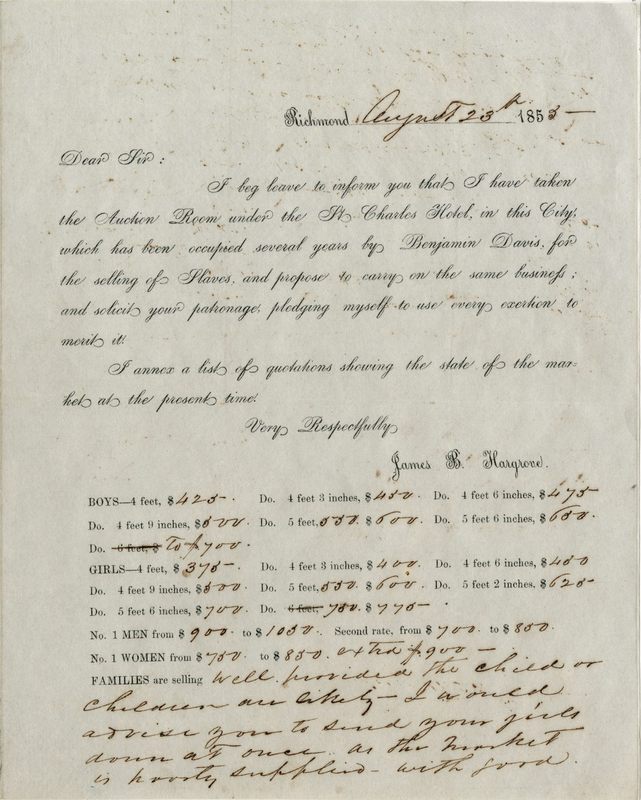 Richmond August 23th 1853 —
Dear Sir :
I beg leave to inform you that I have taken
the Auction Room under the St Charles Hotel, in this City,
which has been occupied several years by Benjamin Davis, for
the selling of Slaves, and propose to carry on the same business ;
and solicit your patronage, pledging myself to use every exertion to
merit it.
I annex a list of quotations showing the state of the mar-
ket at the present time.
Very Respectfully
James B. Hargrove.
BOYS—4 feet, $425. Do. 4 feet 3 inches, $450. Do. 4 feet 6 inches, $475
Do. 4 feet 9 inches, $500. Do. 5 feet, 550. $600. Do. 5 feet 6 inches, $650.
Do. 6 feet, $ To $700.
GIRLS—4 feet, $375— Do. 4 feet 3 inches, $400. Do. 4 feet 6 inches, $450
Do. 4 feet 9 inches, $500 Do. 5 feet, 550 $600. Do. 5 feet 2 inches, $625
Do. 5 feet 6 inches, $700 Do. 6 feet, 750. $775—.
No. 1 MEN from $900. to $1050. Second rate, from $700. to $850.
No. 1 WOMEN from $750 to $850. extra $900 —
FAMILIES are selling well. provided the child or
children are likely — I would
advise you to send your girls
down at once. as the market
is poorly supplied — with good.